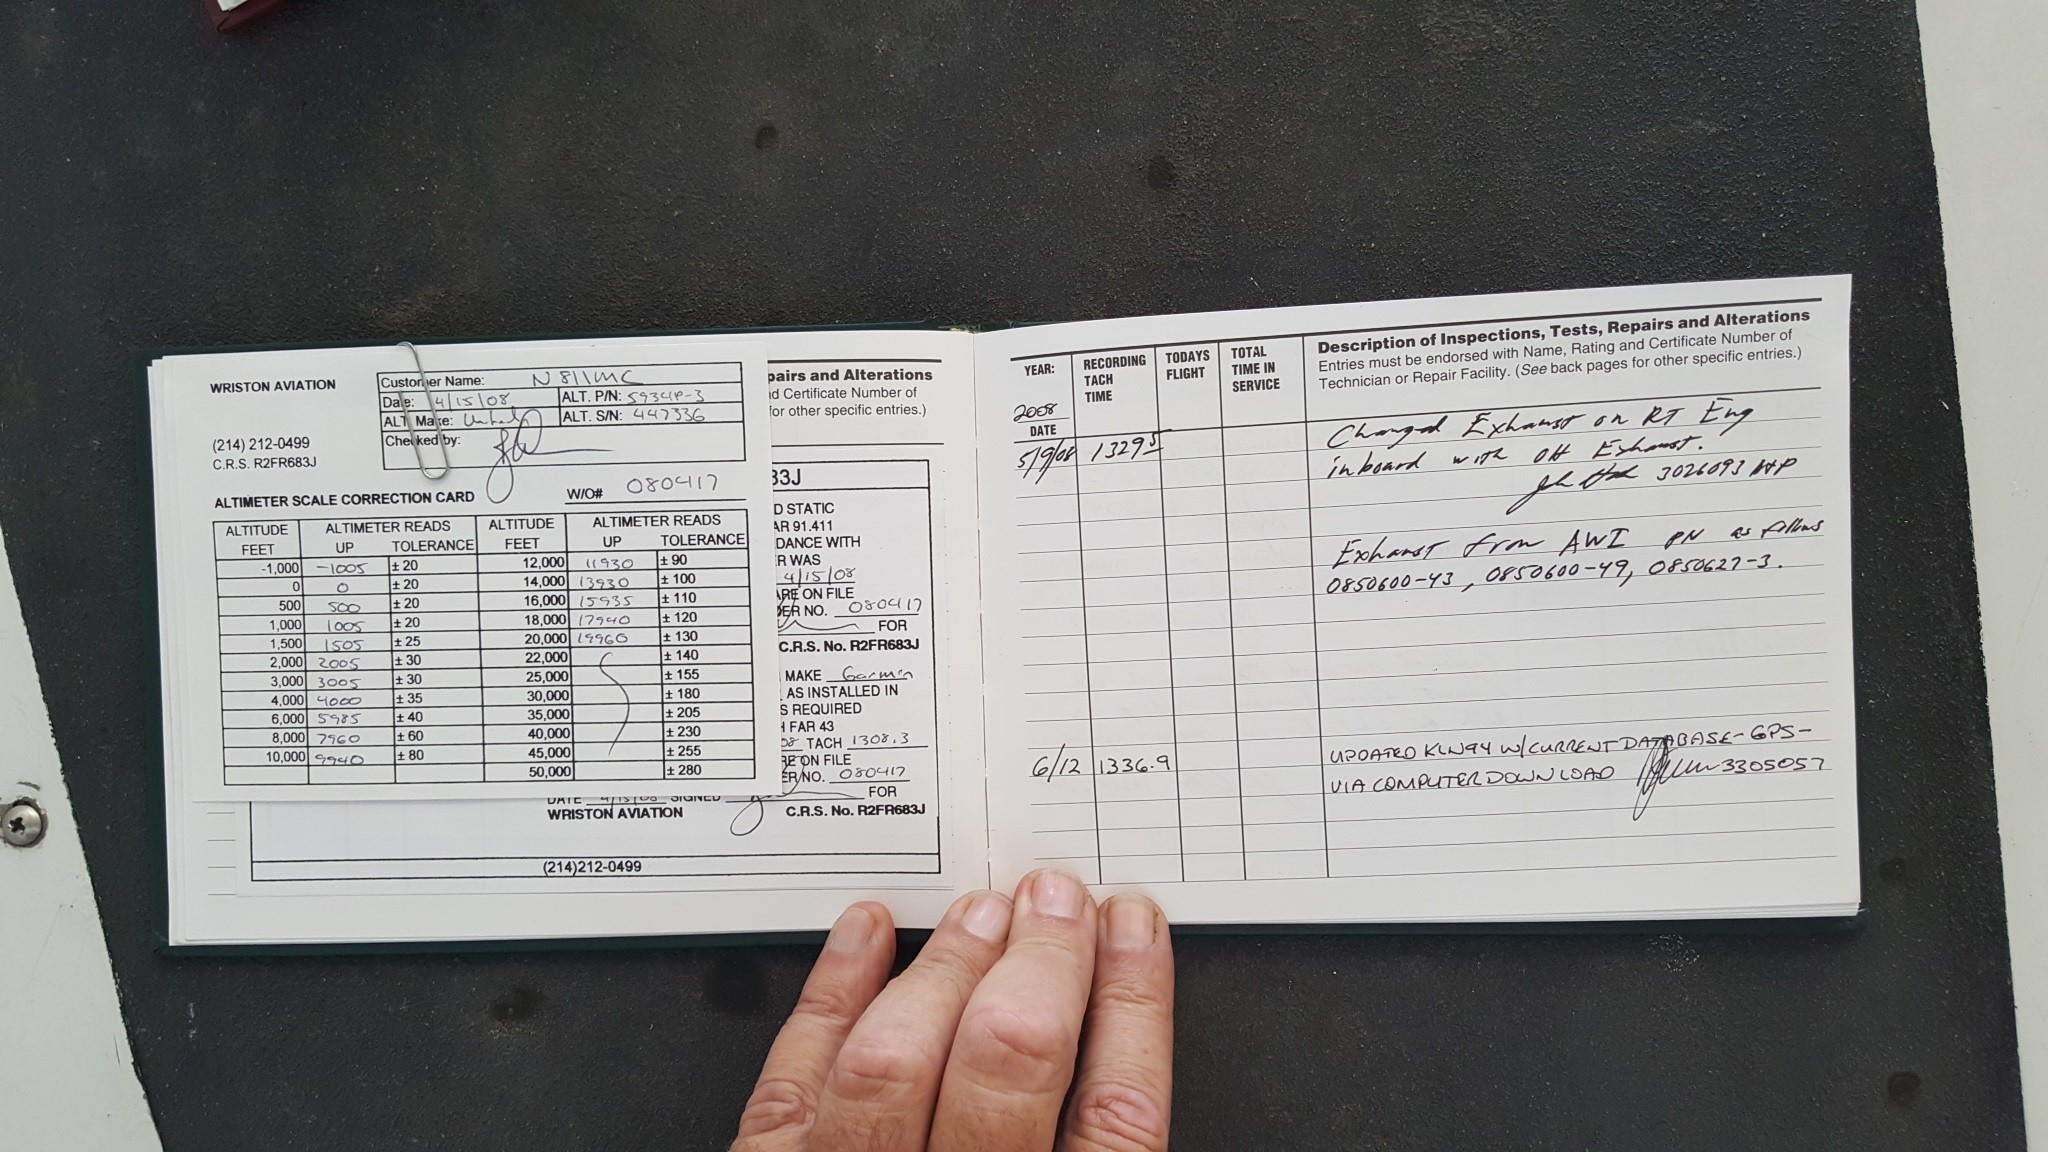 WRISTON AVIATION
(214) 212-0499
C.R.S. R2FR683J
Customer Name: N811MC
Date: 4/15/08 ALT. P/N: 5934P-3
ALT Make: ALT. S/N: 447336
Checked by:
ALTIMETER SCALE CORRECTION CARD W/O# 080417
ALTITUDE FEET ALTIMETER READS UP TOLERANCE ALTITUDE FEET ALTIMETER READS UP TOLERANCE
-1,000 -1005 ± 20 12,000 11930 ± 90
0 0 ± 20 14,000 13930 ± 100
500 500 ± 20 16,000 15935 ± 110
1,000 1005 ± 20 18,000 17940 ± 120
1,500 1505 ± 25 20,000 19960 ± 130
2,000 2005 ± 30 22,000 ± 140
3,000 3005 ± 30 25,000 ± 155
4,000 4000 ± 35 30,000 ± 180
6,000 5985 ± 40 35,000 ± 205
8,000 7960 ± 60 40,000 ± 230
10,000 9940 ± 80 45,000 ± 255
50,000 ± 280
pairs and Alterations
d Certificate Number of
for other specific entries.)
33J
D STATIC
AR 91.411
DANCE WITH
R WAS
4/15/08
ARE ON FILE
ER NO. 080417
FOR
C.R.S. No. R2FR683J
MAKE Garmin
AS INSTALLED IN
S REQUIRED
FAR 43
08 TACH 1308.3
RE ON FILE
ER NO. 080417
DATE 4/15/08 SIGNED FOR
WRISTON AVIATION C.R.S. No. R2FR683J
(214)212-0499
YEAR: 2008
DATE
RECORDING TACH TIME
TODAYS FLIGHT
TOTAL TIME IN SERVICE
Description of Inspections, Tests, Repairs and Alterations
Entries must be endorsed with Name, Rating and Certificate Number of
Technician or Repair Facility. (See back pages for other specific entries.)
5/9/08 1329.5 Changed Exhaust on RT Eng
inboard with OH Exhaust.
3026093 A&P
Exhaust from AWI PN as follows
0850600-43, 0850600-49, 0850627-3.
6/12 1336.9 UPDATED KLN94 W/CURRENT DATABASE-GPS-
VIA COMPUTER DOWNLOAD 3305057